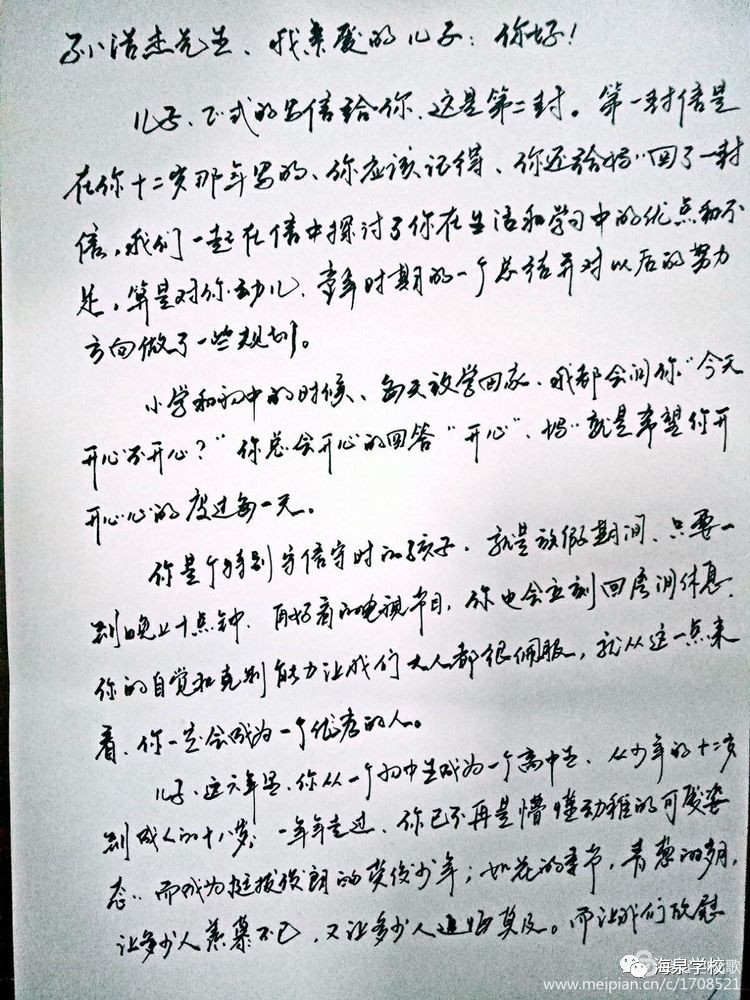 孙浩杰先生、我亲爱的儿子：你好！
儿子、正式的写信给你、这是第二封。第一封信是
在你十二岁那年写的、你应该记得、你还给妈〃回了一封
信，我们一起在信中探讨了你在生活和学习中的优点和不
足，算是对你幼儿、童年时期的一个总结并对以后的努力
方向做了一些规划。
小学和初中的时候、每天放学回家、我都会问你“今天
开心不开心？”你总会开心的回答“开心”、妈〃就是希望你开
开心心的度过每一天。
你是个特别守信守时的孩子，就是放假期间、只要一
到晚上十点钟、再好看的电视节目，你也会立刻回房间休息，
你的自觉和克制能力让我们大人都很佩服，就从这一点来
看、你一定会成为一个优秀的人。
儿子、这六年里、你从一个初中生成为一个高中生、从少年的十二岁
到成人的十八岁；一年年走过、你已不再是懵懂幼稚的可爱姿
态、而成为挺拔俊朗的英俊少年；如花的季节，青葱的岁月，
让多少人羡慕不已，又让多少人追悔莫及。而让我们欣慰
海泉学校歌
www.meipian.cn/c/1708521